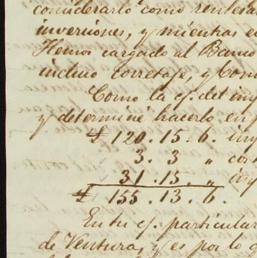 considerarlo como rentas
inversiones, y mientras e
Hemos cargado al Banco
incluso corretaje, y Com
Como la cj. del in
y determiné hacerlo en
£ 120. 15. 6. in
3. 3 " co
31. 15. "
£ 155. 13. 6.
Entre cj. particular
de Ventura, y es por lo q